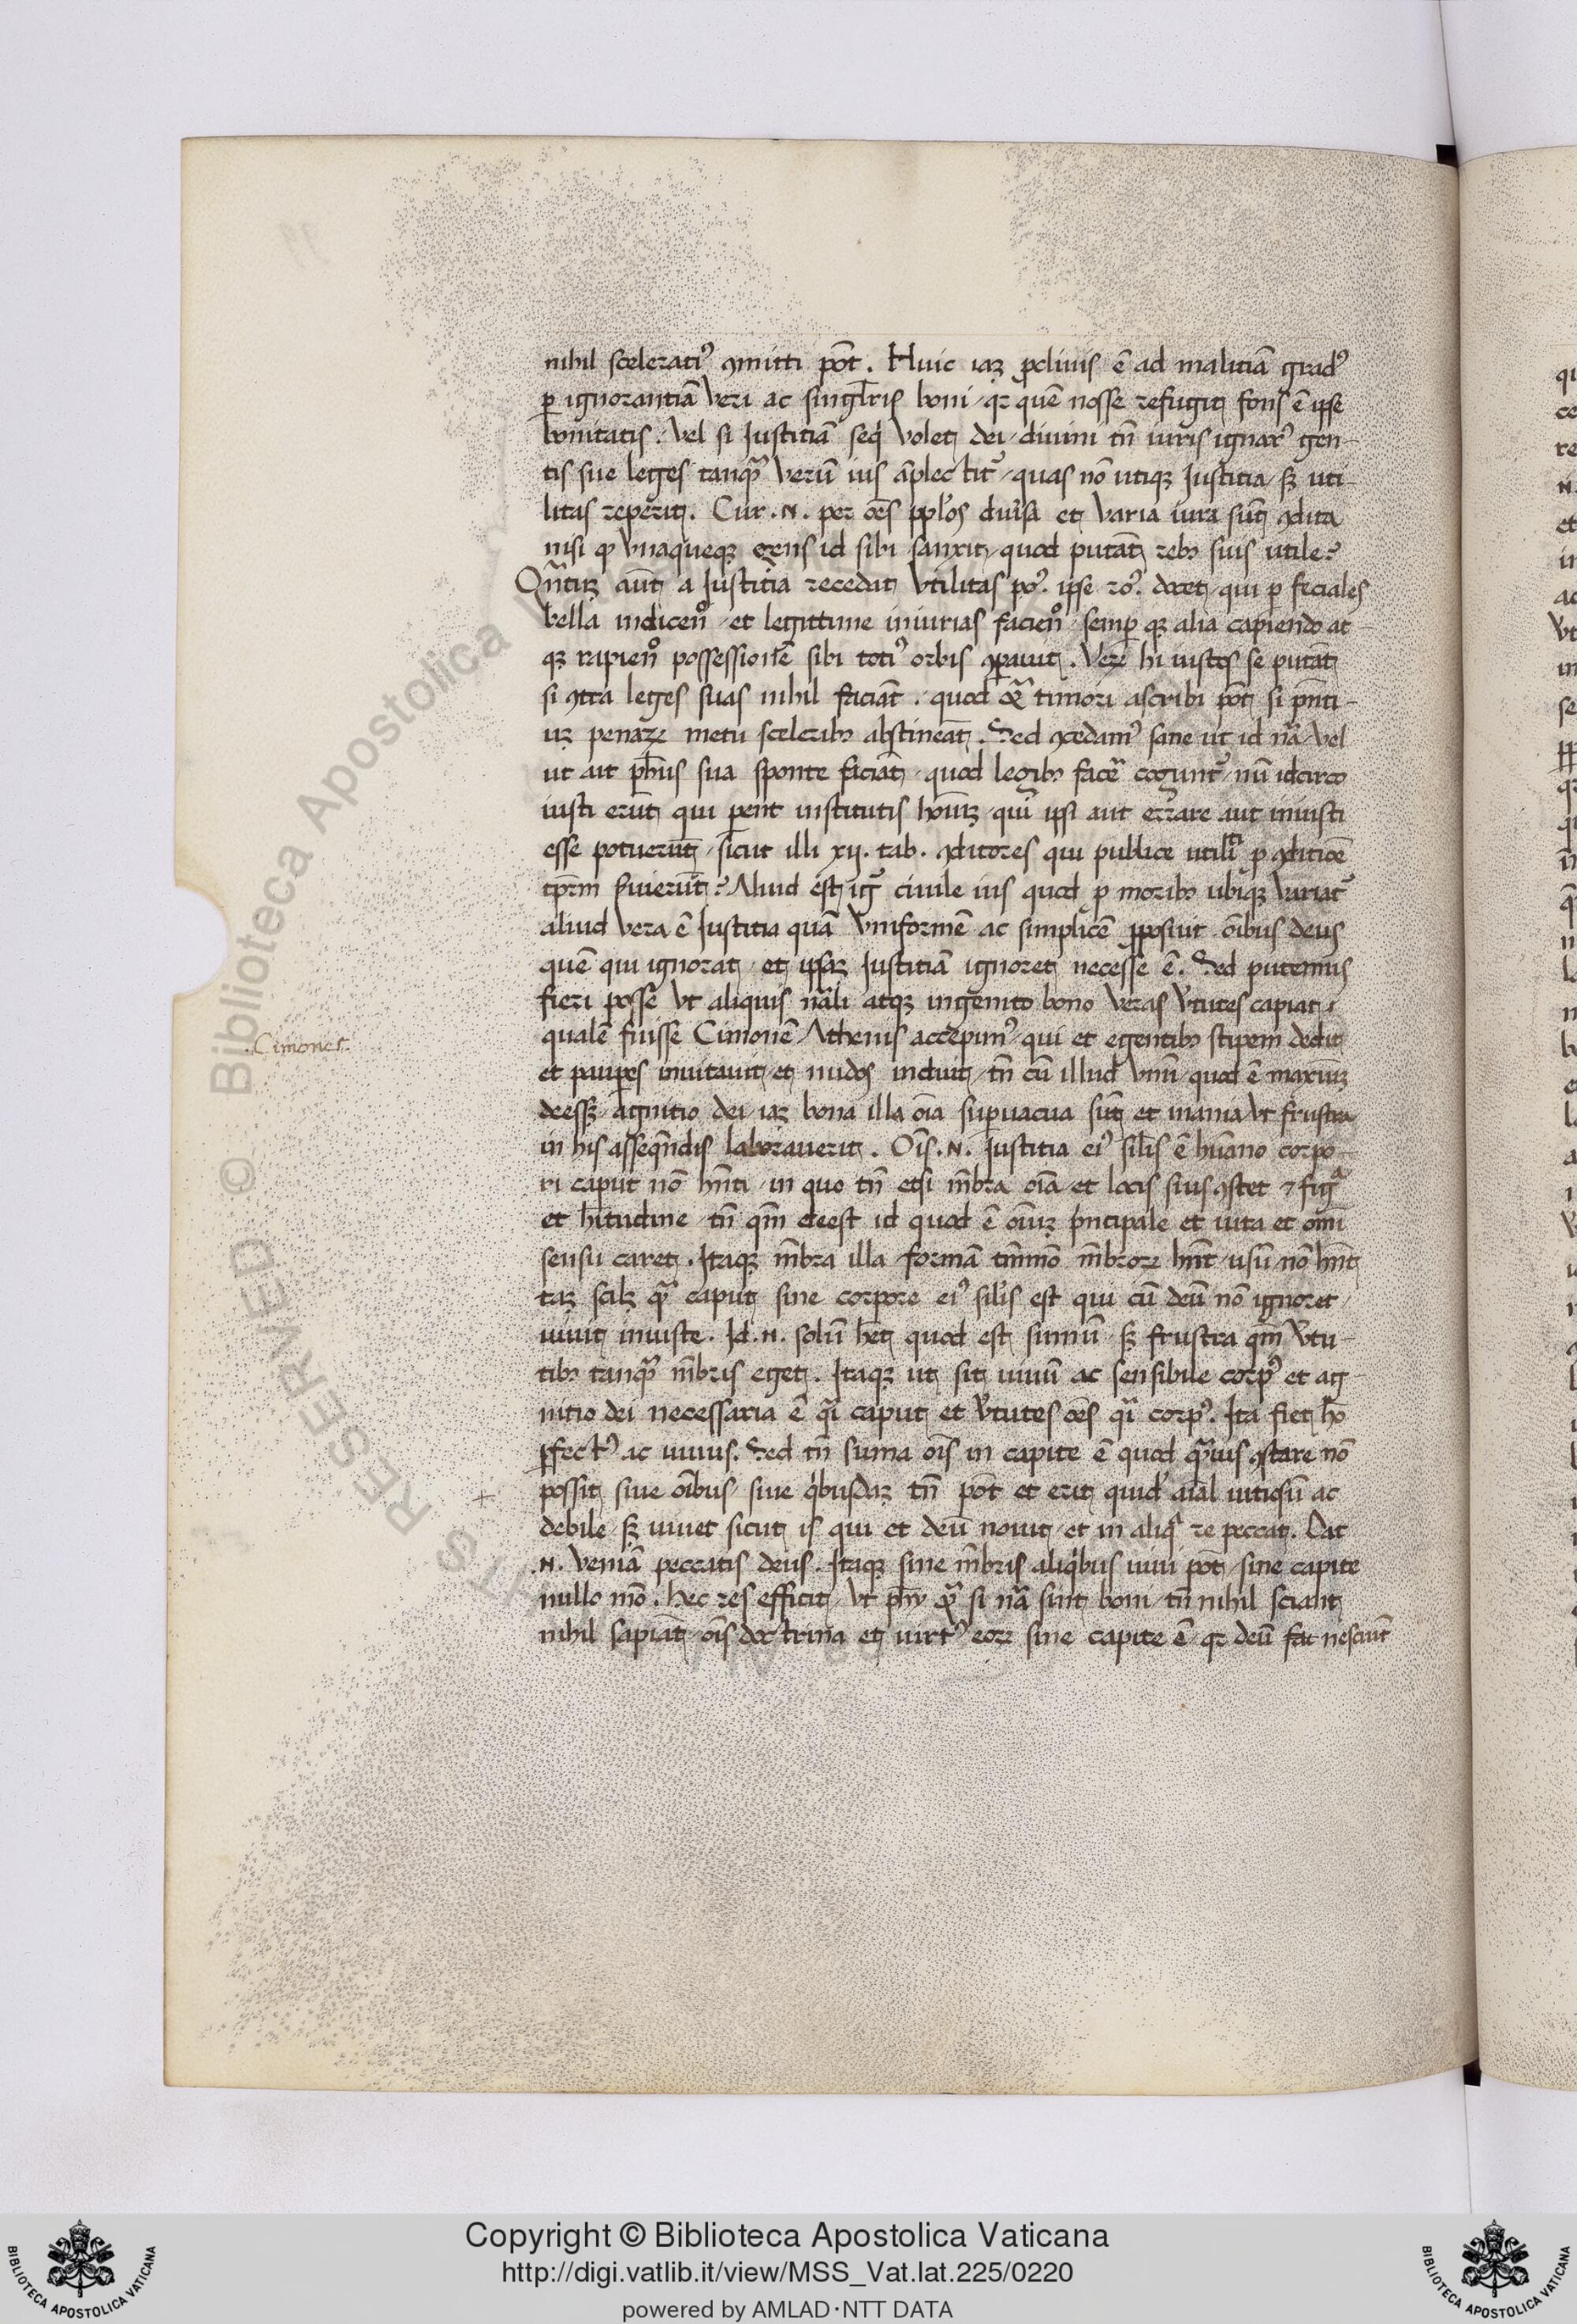 nihil scelerati⁹ ꝯmitti pōt. Huic iaꝫ ꝓcliuis ē ad malitiā grad⁹
ꝑ ignorantiā veri ac singl̄ris boni / qꝛ quē nosse refugit fons ē ipse
bonitatis. vel si Iustitiā seq̇ volet dei / diuini tn̄ iuris ignar⁹ gen-
tis sue leges tanqᷓ verū ius āplectit᷑ / quas nō utiqꝫ Iustitia / sꝫ uti-
litas reperit. Cur .N. per oēs ppl̓os diu̓sa et varia iura sūt ꝯdita
nisi ꝙ vnaqueqꝫ gens id sibi sanxit / quod putāt rebꝫ suis utile?
Qn̄tuꝫ aūt a Iustitia recedat vtilitas po⁹. ipse ro⁹. docet / qui ꝑ feciales
bella indicen͏̊ / et legittime iniurias facien͏̊ / semꝑ qꝫ alia capiendo at
qꝫ rapien͏̊ possessionē sibi toti⁹ orbis ꝯꝑauit. Veꝝ hi iustos se putāt
si ꝯtra leges suas nihil faciāt . quod &ᷓ timori ascribi pōt si pn̄ti-
uꝫ penaꝝ metu sceleribꝫ abstineāt. Sed ꝯcedam⁹ sane ut id nᷓa vel
ut ait ph̄us sua sponte faciāt / quod legibꝫ facē cogunt᷑ / nū idcirco
iusti erūt qui parent institutis hoīuꝫ / qui ipsi aut errare aut iniusti
esse potuerūt / sicut illi xij. tab. ꝯditores qui publice utilit̄i ꝓ ꝯditiōe
tp̄rm fuierūt? Aliud est ig͏᷑ ciuile ius quod ꝓ moribꝫ ubiqꝫ variat᷑
aliud vera ē Iustitia quā vniformē ac simplicē ꝓposuit oībus deus
quē qui ignorat / et ipsaꝫ Iustitiā ignoret necesse ē. Sed putemus
fieri posse vt aliquis nᷓali atqꝫ ingenito bono veras v̓tutes capiat /
.Cimones.
qualē fuisse Cimonē Athenis accepim⁹ / qui et egentibꝫ stipem dedit
et pauꝑes inuitauit / et nudos induit / tn̄ cū illud vnū / quod ē maximꝫ
deesset / agnitio dei / iaꝫ bona illa oīa suꝑuacua sūt et inania vt frustra
in his asseqn̄dis laborauerit. Oīs .N. Iustitia ei⁹ sil̄is ē hūano corpo-
ri caput nō hn̄ti / in quo tn̄ etsi mēbra oīa et locis suis ꝯstet ⁊ figᷓ
et hītudine / tn̄ qm̄ deest id quod ē oīuꝫ pn̄cipale et uita et omī
sensu caret. Itaqꝫ mēbra illa formā tm̄mō mēbroꝝ hn̄t / usū nō hn̄t
taꝫ scilꝫ qᷓ caput sine corpore ei⁹ sil̓is est qui cū deū nō ignoret /
uiuit iniuste. Id .N. solū hēt quod est sumū / sꝫ frustra qm̄ v̓tu-
tibꝫ tanqᷓ mēbris eget. Itaqꝫ ut sit uiuū ac sensibile corp⁹ et ag-
nitio dei necessaria ē qͣi caput et v̓tutes oēs qͣi corp⁹. Ita fiet hō
ꝑfect⁹ ac uiuus. Sed tn̄ suma oīs in capite ē quod qᷓuis ꝯstare nō
possit siue oībus / siue qͥbusdaꝫ tn̄ pōt et erit quid᷑ aīal uitiosū ac
debile / sꝫ uiuet sicut is qui et deū nouit / et in aliqͣ re peccat. Dat
.N. veniā peccatis deus. Itaqꝫ sine mēbris aliqͥbus uiui pōt / sine capite
nullo mō. hec res efficit / vt phy̓ &ᷓ si nᷓa sint boni / tn̄ nihil sciant
nihil sapiāt / oīs doctrina et uirt⁹ eoꝝ sine capite ē / qꝛ deū fat nesciūt
Copyright © Biblioteca Apostolica Vaticana
http://digi.vatlib.it/view/MSS_Vat.lat.225/0220
powered by AMLAD·NTT DATA
BIBLIOTECA APOSTOLICA VATICANA
BIBLIOTECA APOSTOLICA VATICANA